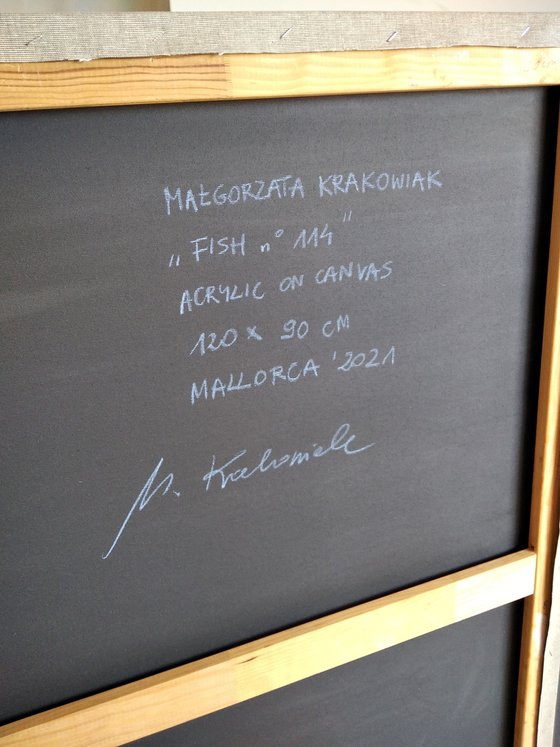 MAŁGORZATA KRAKOWIAK
„FISH n° 114"
ACRYLIC ON CANVAS
120 x 90 CM
MALLORCA '2021
M. Krakowiak